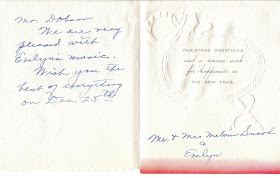 Mr. Doban
We are very
pleased with
Evelyn's music.
Wish you the
best of everything
on Dec. 25th
CHRISTMAS GREETINGS
and a sincere wish
for happiness in
THE NEW YEAR
Mr. & Mrs Melvin
&
Evelyn